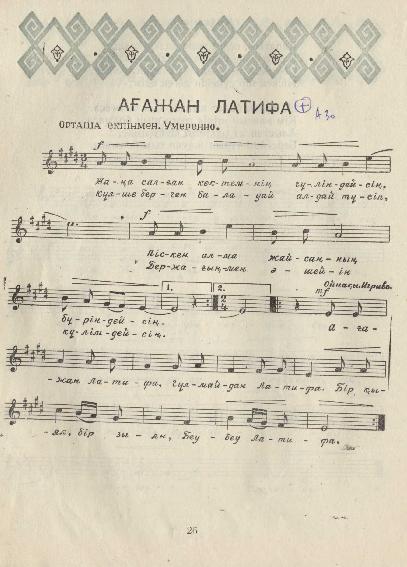 АҒАЖАН ЛАТИФА
А 30
ОРТАША ЕКПІНМЕН. Умеренно.
f
Жа-ңа сал-ған көк-тем-нің гү-лін-дей-сің.
Күл-ше бер-ген ба-ла-дай ал-дай тү-сіп,
f
Піс-кен ал-ма жай-саң-ның
Бер-жа-ғың-мен ә-шей-ін
1. 2. Ойнақы. Игриво.
mf
бү-рін-дей-сің. А-ға-
кү-лім-дей-сің.
-жан Ла-ти-фа, гүл-май-дан Ла-ти-фа. Бір қы-
-ял, бір зы-ян, Беу-беу Ла-ти-фа.
26